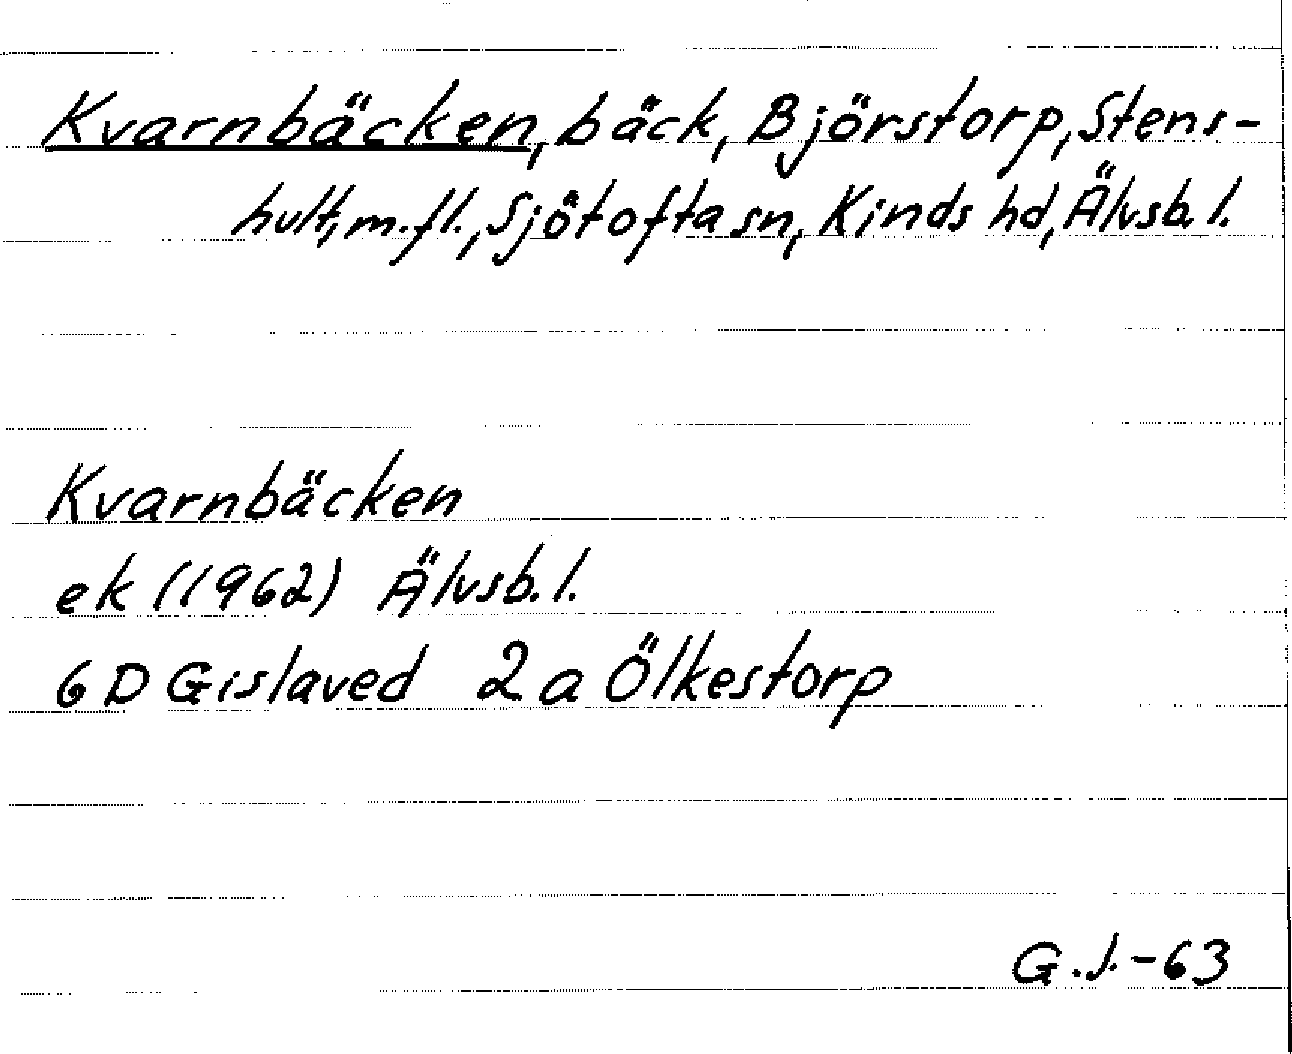 Kvarnbäcken, bäck, Björstorp, Stens-
hult, m.fl., Sjötofta sn, Kinds hd, Älvsb. l.
Kvarnbäcken
ek (1962) Älvsb. l.
6 D Gislaved 2 a Ölkestorp
G.J.-63